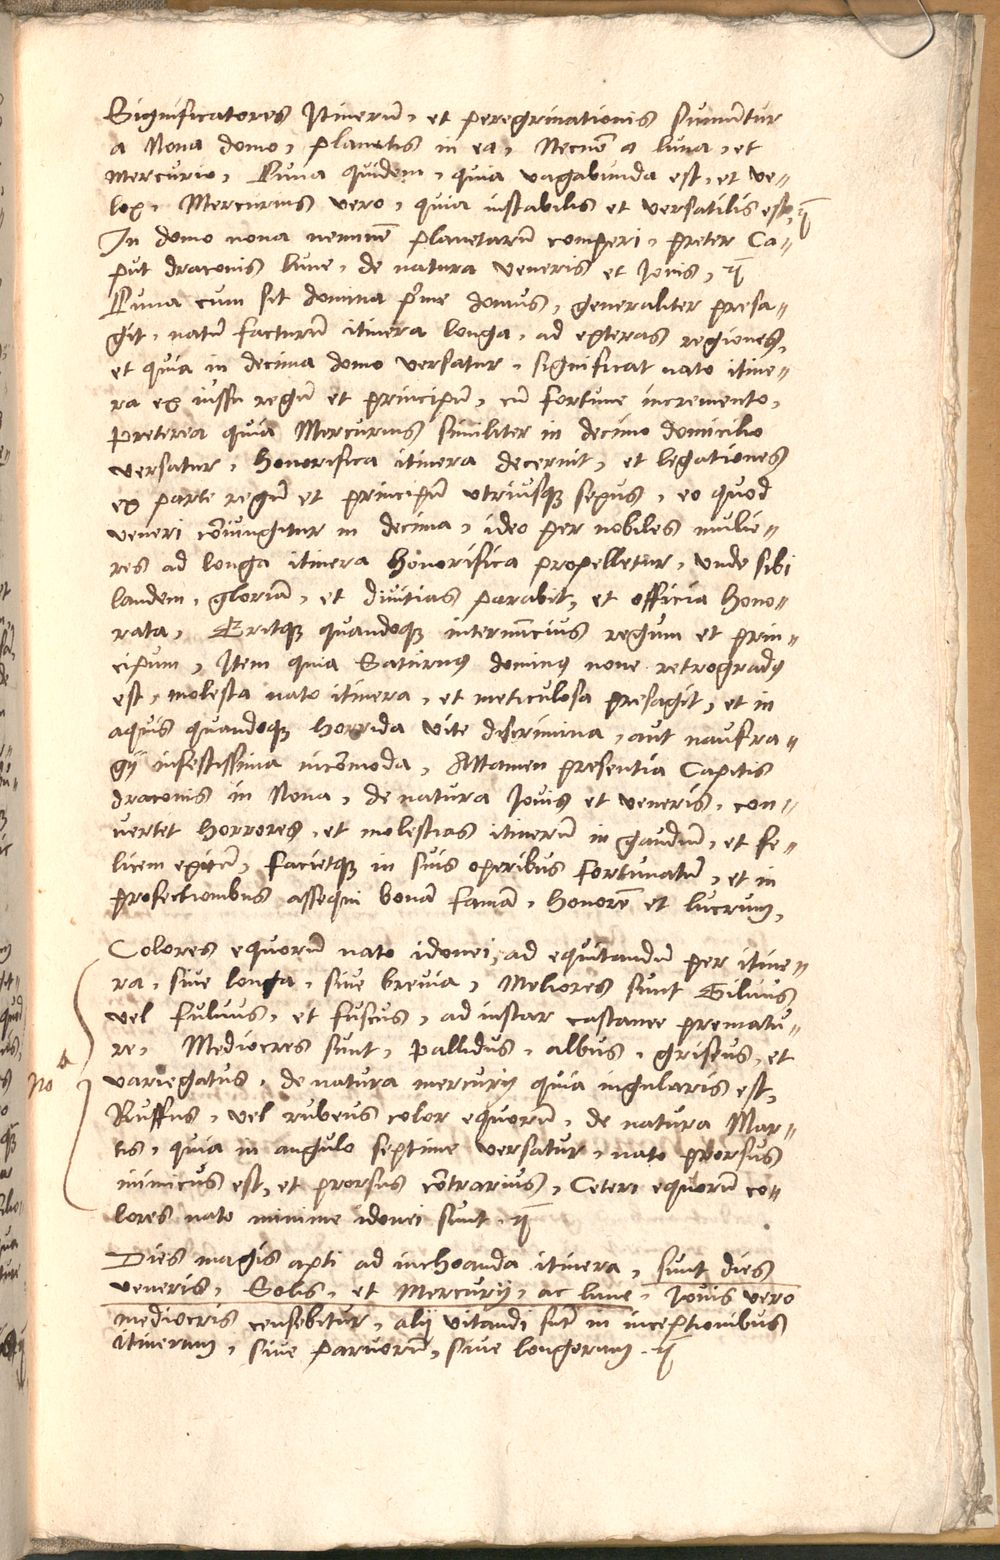 Significatores Itinerū, et peregrinationis sumūtur
a Nona domo, planetis in ea, Necnō a luna, et
Mercurio, Luna quidem, quia vagabunda est, et ve-
lox, Mercurius vero, quia instabilis et versatilis est,
In domo nona neminē planetarū comperi, preter Ca-
put draconis lune, de natura Veneris et Jovis,
Luna cum sit domina p'me domus, generaliter presa-
git, natū facturū itinera longa, ad exteras regiones,
et quia in decima domo versatur, significat nato itine-
ra ex iussu regū et principū, cū fortune incremento,
Preterea quia Mercurius similiter in decimo domicilio
versatur, honorifica itinera decernit, et legationes
ex parte regū et principū utriusq; sexus, eo quod
veneri cōiungitur in decima, ideo per nobiles mulie-
res ad longa itinera honorifica propelletur, unde sibi
laudem, gloriā, et divitias parabit, et officia hono-
rata, Eritq; quandoq; internūcius regum et prin-
cipum, Item quia Saturnus dominus none retrogradus
est, molesta nato itinera, et meticulosa presagit, et in
aquis quandoq; horrida vite discrimina, aut naufra-
gij infestissima incōmoda, Attamen presentia Capitis
draconis in Nona, de natura Jovis et veneris, con-
vertet horrores, et molestias itinerū in gaudiū, et fe-
licem exitū, facietq; in suis operibus fortunatū, et in
profectionibus assequi bonā famā, honorē et lucrum,
Colores equorū nato idonei, ad equitandū per itine-
ra, sive longa, sive brevia, Meliores sunt Gilvus
vel fulvus, et fuscus, ad instar castanee prematu-
re, Mediocres sunt, pallidus, albus, griseus, et
No
variegatus, de natura mercurij quia angularis est,
Ruffus, vel rubeus color equorū, de natura Mar-
tis, quia in angulo septime versatur, nato prorsus
inimicus est, et prorsus cōtrarius, Ceteri equorū co-
lores nato minime idonei sunt.
Dies magis apti ad inchoanda itinera, sunt dies
veneris, Solis, et Mercurij, ac lune, Jovis vero
mediocris censebitur, alij vitandi sūt in inceptionibus
itinerum, sive parvorū, sive longorum.